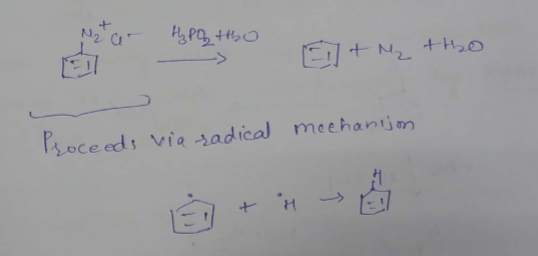 N2+ Cl- H3PO2+H2O → + N2 + H2O
Proceeds via radical mechanism
+ •H → H